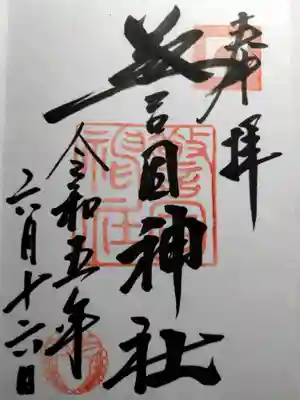 奉拝
誉田神社
令和五年
六月十六日